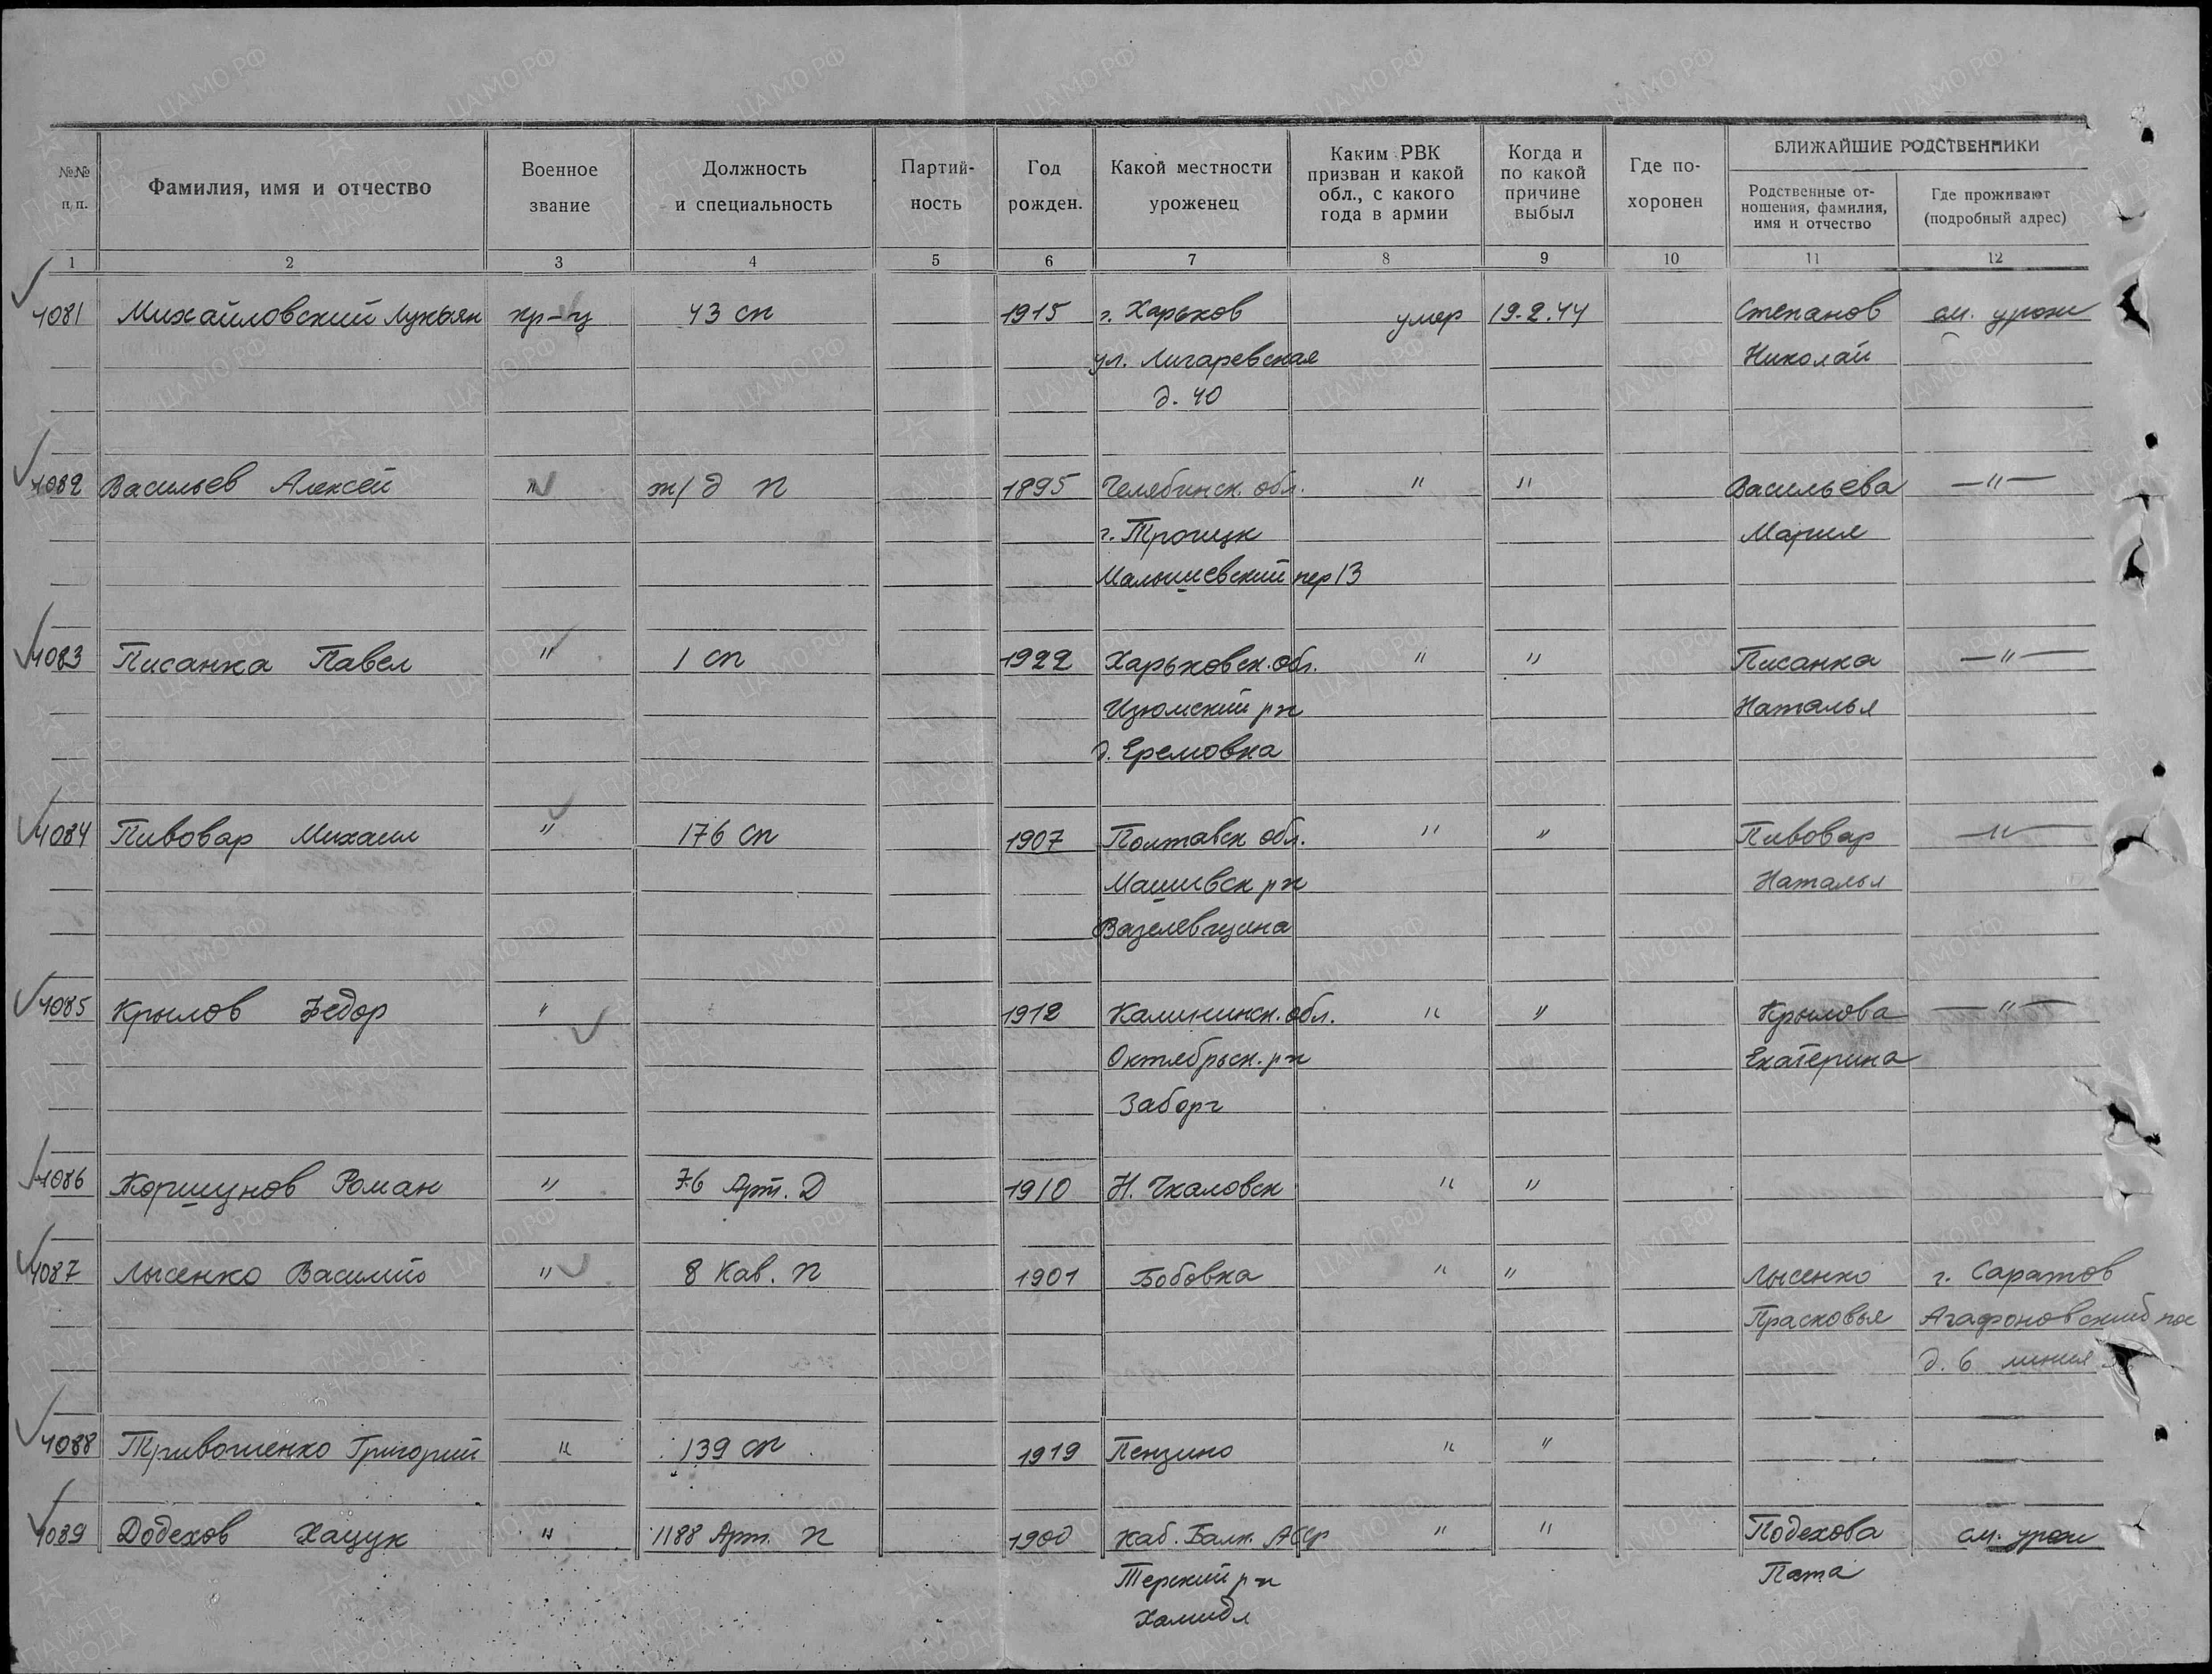 №№ п. п.
Фамилия, имя и отчество
Военное звание
Должность и специальность
Партий-ность
Год рожден.
Какой местности уроженец
Каким РВК призван и какой обл., с какого года в армии
Когда и по какой причине выбыл
Где по-хоронен
БЛИЖАЙШИЕ РОДСТВЕННИКИ
Родственные от-ношения, фамилия, имя и отчество
Где проживают (подробный адрес)
1 2 3 4 5 6 7 8 9 10 11 12
4081 Михайловский Лукьян кр-ц 43 сп 1915 г. Харьков умер 19.2.44 Степанов см. урож
ул. Лигаревская Николай
д. 40
4082 Васильев Алексей " ж/д п 1895 Челябинск. обл. " " Васильева —"—
г. Троицк Мария
Малышевский пер 13
4083 Писанка Павел " 1 сп 1922 Харьковск. обл. " " Писанка —"—
Изюмский р-н Наталья
д. Еремовка
4084 Пивовар Михаил " 176 сп 1907 Полтавск обл. " " Пивовар —"—
Машивск р-н Наталья
Вазелевщина
4085 Крылов Федор " 1912 Калининск. обл. " " Крылова —"—
Октябрьск. р-н Екатерина
Заборг
4086 Коршунов Роман " 76 Арт. Д 1910 Н. Чкаловск " "
4087 Лысенко Василий " 8 Кав. п 1901 Бобовка " " Лысенко г. Саратов
Прасковья Агафоновский пос
д. 6 линия
4088 Тривошенко Григорий " 139 сп 1919 Пензино " "
4089 Додехов Хацук " 1188 Арт. п 1900 Каб. Балк. АССР " " Подехова см. урож
Терский р-н Пата
Хамидл